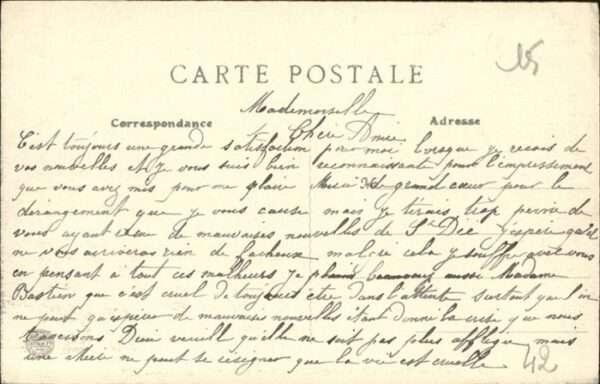 15
CARTE POSTALE
Mademoiselle
Correspondance
Adresse
Chère Amie
C'est toujours une grande satisfaction pour moi lorsque je reçois de
vos nouvelles et je vous suis bien reconnaissante pour l'empressement
que vous avez mis pour me plaire Merci de grand cœur pour le
derangement que je vous cause mais je tenais trop
vous ayant de mauvaises nouvelles de St Dié j'espère qu'il
ne vous arrivera rien de facheux malgré cela je souffre avec vous
en pensant à tout ces malheurs je plains beaucoup aussi Madame
Bastien que c'est cruel de toujours être dans l'attente surtout que l'on
ne peut qu'espérer de mauvaises nouvelles étant donné la crise que nous
traversons Dieu veuille qu'elle ne soit pas plus affligée mais
une mère ne peut se résigner que la vie est cruelle
42